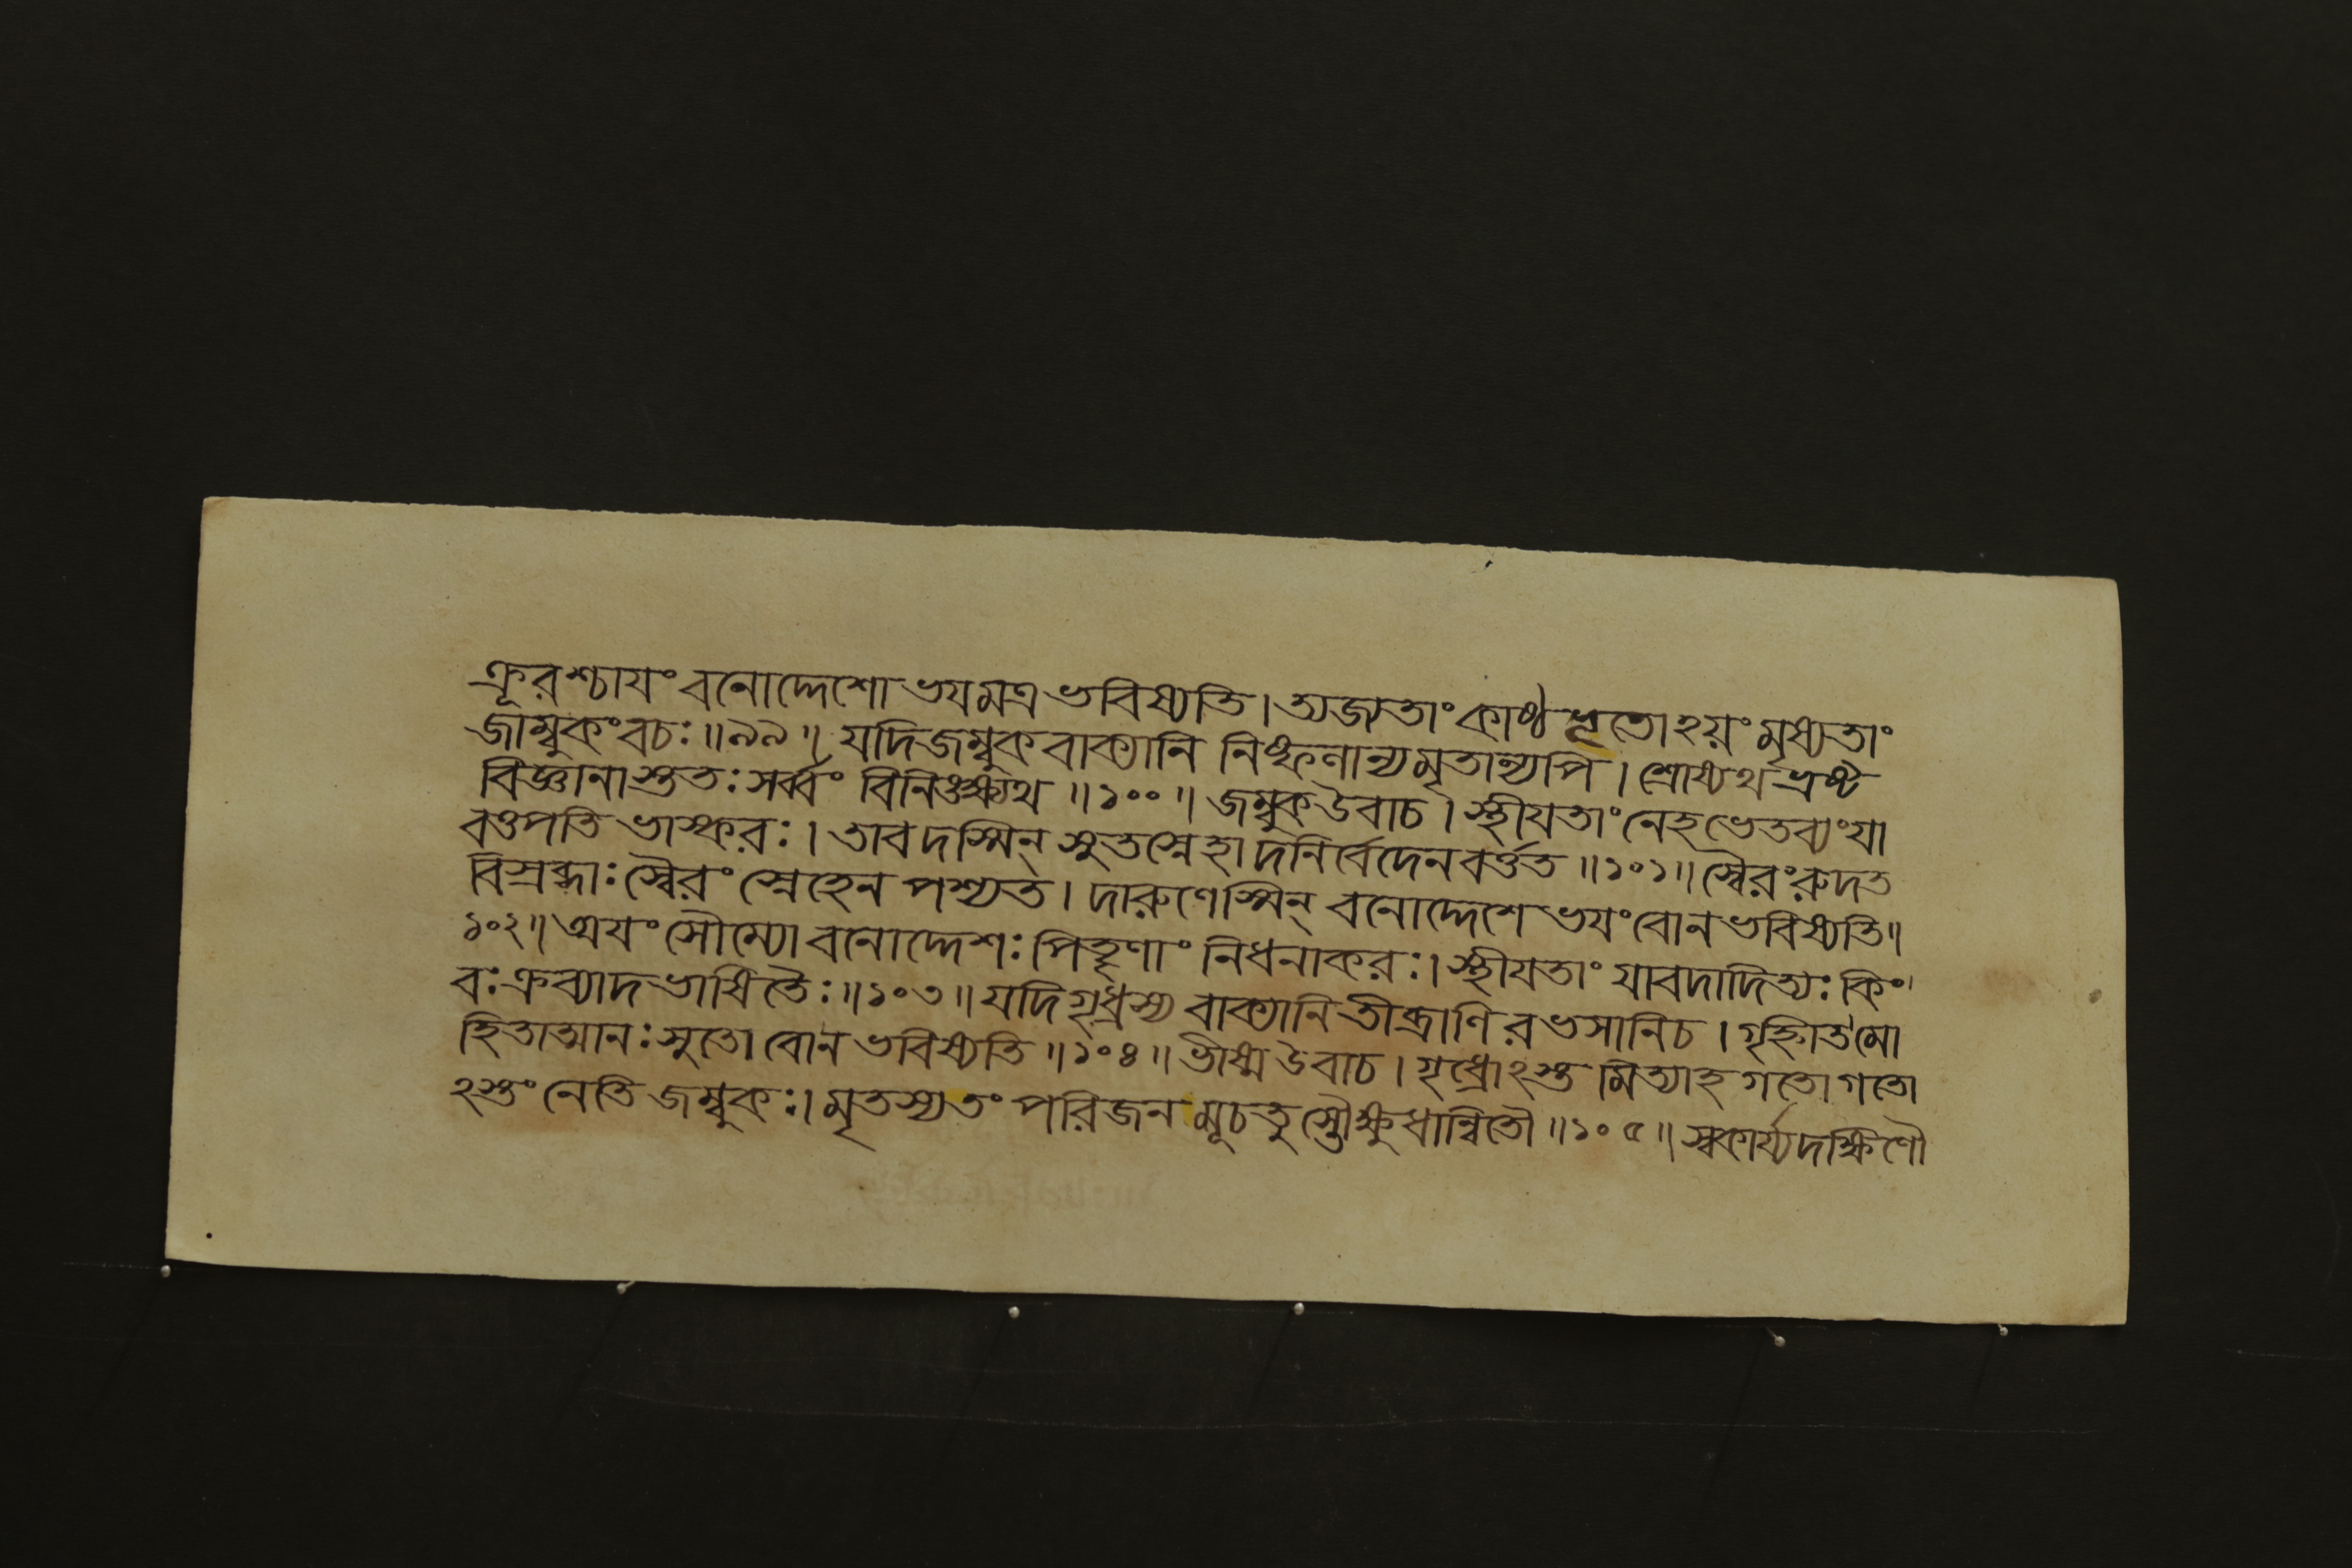 ক্রূরশ্চাযং বনোদ্দেশো ভযমত্র ভবিষ্যতি। ত্যজ্যতাং কাষ্ঠভূতোঽয়ং মৃষ্যতাং
জাম্বুকং বচঃ॥৯৯॥ যদি জম্বুকবাক্যানি নিষ্ফলান্যমৃতান্যপি। শ্রোষ্যথ ভ্রষ্ট
বিজ্ঞানাস্ততঃ সর্ব্বং বিনিঙ্ক্ষ্যথ॥১০০॥ জম্বুক উবাচ। স্থীযতাং নেহ ভেতব্যং যা
বত্তপতি ভাস্করঃ। তাবদস্মিন্ সুতস্নেহাদনির্বেদেন বর্ত্তত॥১০১॥ স্বৈরং রুদত
বিস্রব্ধাঃ স্বৈরং স্নেহেন পশ্যত। দারুণেস্মিন্ বনোদ্দেশে ভযং বো ন ভবিষ্যতি॥
১০২॥ অযং সৌম্যো বনোদ্দেশঃ পিতৄণাং নিধনাকরঃ। স্থীযতাং যাবদাদিত্যঃ কিং
বঃ ক্রব্যাদভাষিতৈঃ॥১০৩॥ যদি গৃধ্রস্য বাক্যানি তীব্রাণি রভসানি চ। গৃহ্নীত মো
হিতাত্মানঃ সুতো বো ন ভবিষ্যতি॥১০৪॥ ভীষ্ম উবাচ। গৃধ্রোঽস্তমিত্যাহ গতো গতো
ঽস্তং নেতি জম্বুকঃ। মৃতস্য তং পরিজনমূচতুস্তৌ ক্ষুধান্বিতৌ॥১০৫॥ স্বকার্য্যদক্ষিণৌ